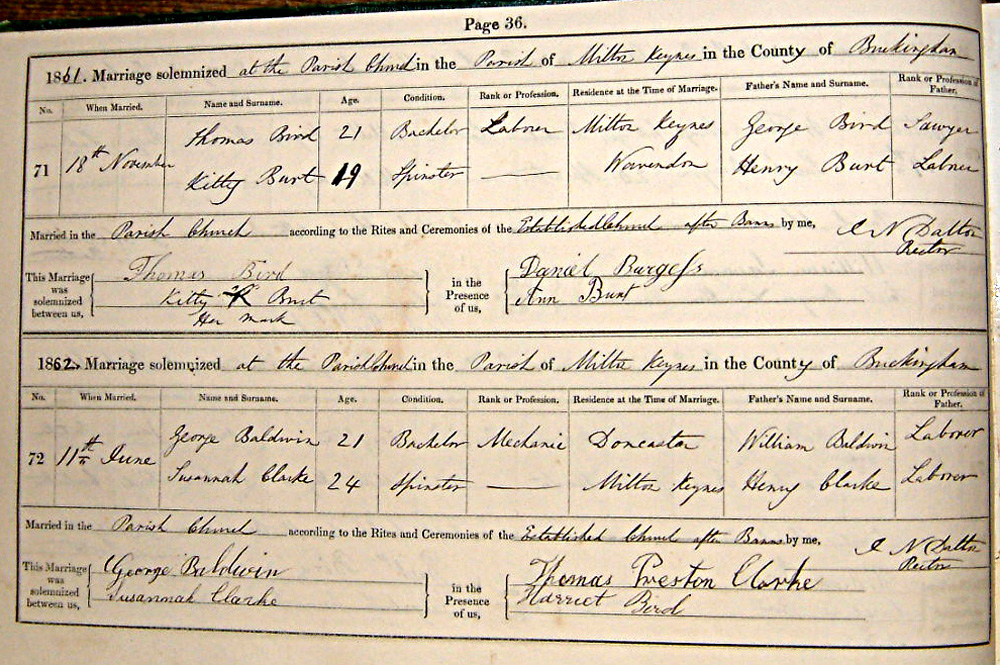 Page 36.
1861. Marriage solemnized at the Parish Church in the Parish of Milton Keynes in the County of Buckingham
No. When Married. Name and Surname. Age. Condition. Rank or Profession. Residence at the Time of Marriage. Father's Name and Surname. Rank or Profession of Father.
Thomas Bird 21 Bachelor Laborer Milton Keynes George Bird Sawyer
71 18th November
Kitty Burt 19 Spinster — Wavendon Henry Burt Laborer
Married in the Parish Church according to the Rites and Ceremonies of the Established Church after Banns by me, N Dalton
Rector
This Marriage was solemnized between us, Thomas Bird in the Presence of us, Daniel Burgess
Kitty X Burt Ann Burt
Her Mark
1862. Marriage solemnized at the Parish Church in the Parish of Milton Keynes in the County of Buckingham
No. When Married. Name and Surname. Age. Condition. Rank or Profession. Residence at the Time of Marriage. Father's Name and Surname. Rank or Profession of Father.
George Baldwin 21 Bachelor Mechanic Doncaster William Baldwin Laborer
72 11th June
Susannah Clarke 24 Spinster — Milton Keynes Henry Clarke Laborer
Married in the Parish Church according to the Rites and Ceremonies of the Established Church after Banns by me, N Dalton
Rector
This Marriage was solemnized between us, George Baldwin in the Presence of us, Thomas Preston Clarke
Susannah Clarke Harriet Bird